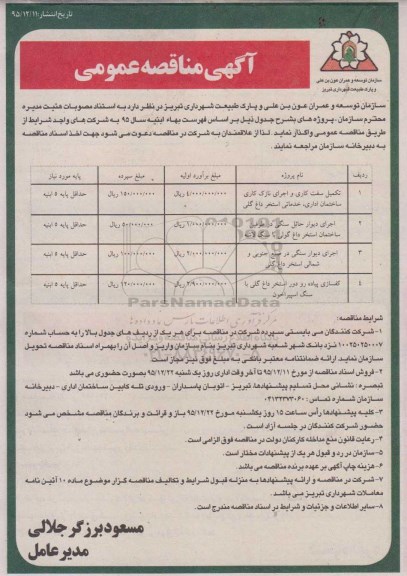 تاریخ انتشار: ۹۵/۱۲/۱۱
آگهی مناقصه عمومی
سازمان توسعه و عمران عون بن علی
و پارک طبیعت شهرداری تبریز
سازمان توسعه و عمران عون بن علی و پارک طبیعت شهرداری تبریز در نظر دارد به استناد مصوبات هئیت مدیره
محترم سازمان، پروژه های بشرح جدول ذیل بر اساس فهرست بهاء ابنیه سال ۹۵ به شرکت های واجد شرایط از
طریق مناقصه عمومی واگذار نماید. لذا از علاقمندان به شرکت در مناقصه دعوت می شود جهت اخذ اسناد مناقصه
به دبیرخانه سازمان مراجعه نمایند.
ردیف نام پروژه مبلغ برآورد اولیه مبلغ سپرده پایه مورد نیاز
۱ تکمیل سفت کاری و اجرای نازک کاری ریال ۱۵۰/۰۰۰/۰۰۰ ریال حداقل پایه ۵ ابنیه
ساختمان اداری، خدماتی استخر داغ گلی
۲ اجرای دیوار حائل سنگی در ۵۰/۰۰۰/۰۰۰ ریال حداقل پایه ۵ ابنیه
ساختمان استخر داغ
۳ اجرای دیوار سنگی در ضلع جنوبی و ۱۰۰/۰۰۰/۰۰۰ ریال حداقل پایه ۵ ابنیه
شمالی استخر داغ گلی
۴ کفسازی پیاده رو دور استخر داغ گلی با ۲/۹۰۰/۰۰۰/۰۰۰ ریال ۱۲۰/۰۰۰/۰۰۰ ریال حداقل پایه ۵ ابنیه
سنگ
ParsNamadData
شرایط مناقصه:
۱-شرکت کنندگان می بایستی سپرده شرکت در مناقصه برای هر یک از ردیف های جدول بالا را به حساب شماره
۱۰۰۲۵۰۲۵۰۰۰۷ نزد بانک شهر شعبه شهرداری تبریز بنام سازمان واریز و اصل آن را بهمراه اسناد مناقصه تحویل
سازمان نماید ارائه ضمانتنامه معتبر بانکی به مبلغ فوق نیز میسر است
۲-فروش اسناد مناقصه از مورخ ۹۵/۱۲/۱۱ تا آخر وقت اداری روز یک شنبه ۹۵/۱۲/۲۲ بصورت حضوری می باشد
تبصره: نشانی محل تسلیم پیشنهادها: تبریز - اتوبان پاسداران - ورودی تله کابین ساختمان اداری - دبیرخانه
سازمان شماره تماس: ۰۴۱۳۲۳۷۳۰۶۰
۳-کلیه پیشنهادها رأس ساعت ۱۵ روز یکشنبه مورخ ۹۵/۱۲/۲۲ باز و قرائت و برندگان مناقصه مشخص می شود
حضور شرکت کنندگان در جلسه آزاد است.
۴-رعایت قانون منع مداخله کارکنان دولت در مناقصه فوق الزامی است.
۵-سازمان در رد و قبول هر یک از پیشنهادات مختار است.
۶-هزینه چاپ آگهی بر عهده برنده مناقصه می باشد.
۷-شرکت در مناقصه و ارائه پیشنهادها به منزله قبول شرایط و تکالیف مناقصه گزار موضوع ماده ۱۰ آئین نامه
معاملات شهرداری تبریز می باشد.
۸-سایر اطلاعات و جزئیات و شرایط در اسناد مناقصه مندرج است.
مسعود برزگر جلالی
مدیر عامل